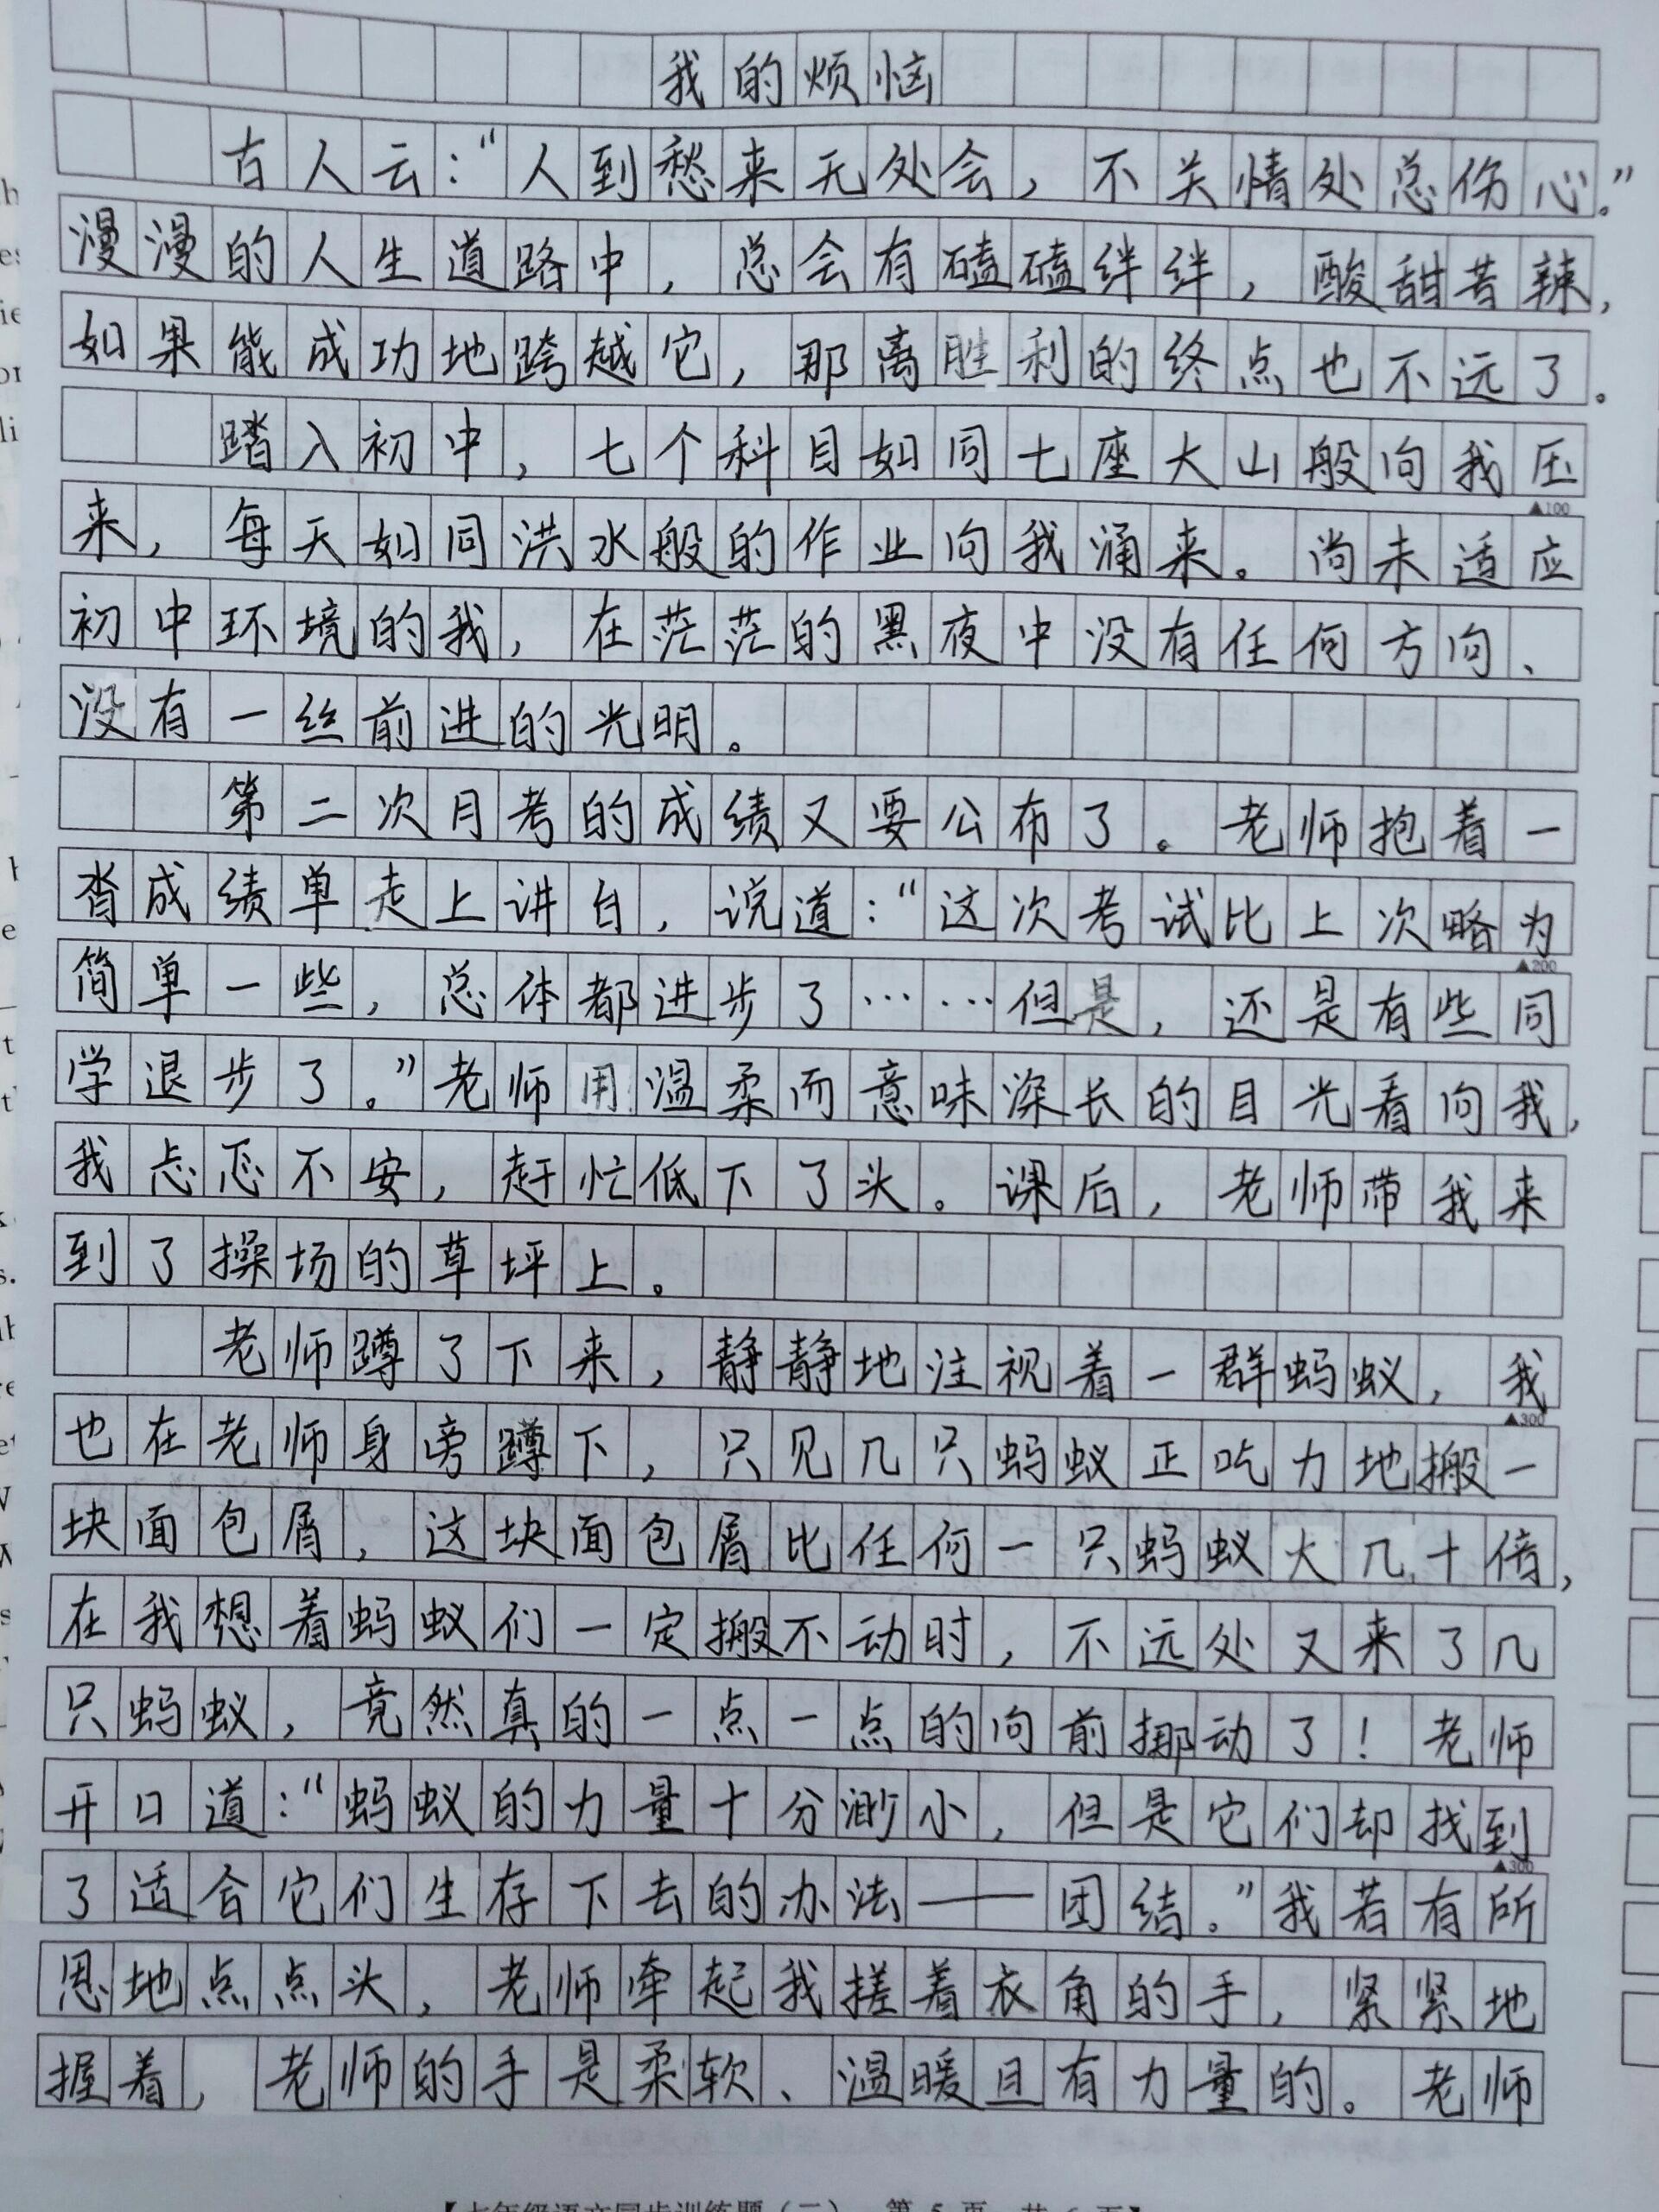 我的烦恼
古人云：“人到愁来无处会，不关情处总伤心。”
漫漫的人生道路中，总会有磕磕绊绊，酸甜苦辣，
如果能成功地跨越它，那离胜利的终点也不远了。
踏入初中，七个科目如同七座大山般向我压
▲100
来，每天如同洪水般的作业向我涌来。尚未适应
初中环境的我，在茫茫的黑夜中没有任何方向、
没有一丝前进的光明。
第二次月考的成绩又要公布了。老师抱着一
沓成绩单走上讲台，说道：“这次考试比上次略为
▲200
简单一些，总体都进步了……但是，还是有些同
学退步了。”老师用温柔而意味深长的目光看向我，
我忐忑不安，赶忙低下了头。课后，老师带我来
到了操场的草坪上。
老师蹲了下来，静静地注视着一群蚂蚁，我
▲300
也在老师身旁蹲下，只见几只蚂蚁正吃力地搬一
块面包屑，这块面包屑比任何一只蚂蚁大几十倍，
在我想着蚂蚁们一定搬不动时，不远处又来了几
只蚂蚁，竟然真的一点一点的向前挪动了！老师
开口道：“蚂蚁的力量十分渺小，但是它们却找到
▲300
了适合它们生存下去的办法——团结。”我若有所
思地点点头，老师牵起我搓着衣角的手，紧紧地
握着，老师的手是柔软、温暖且有力量的。老师